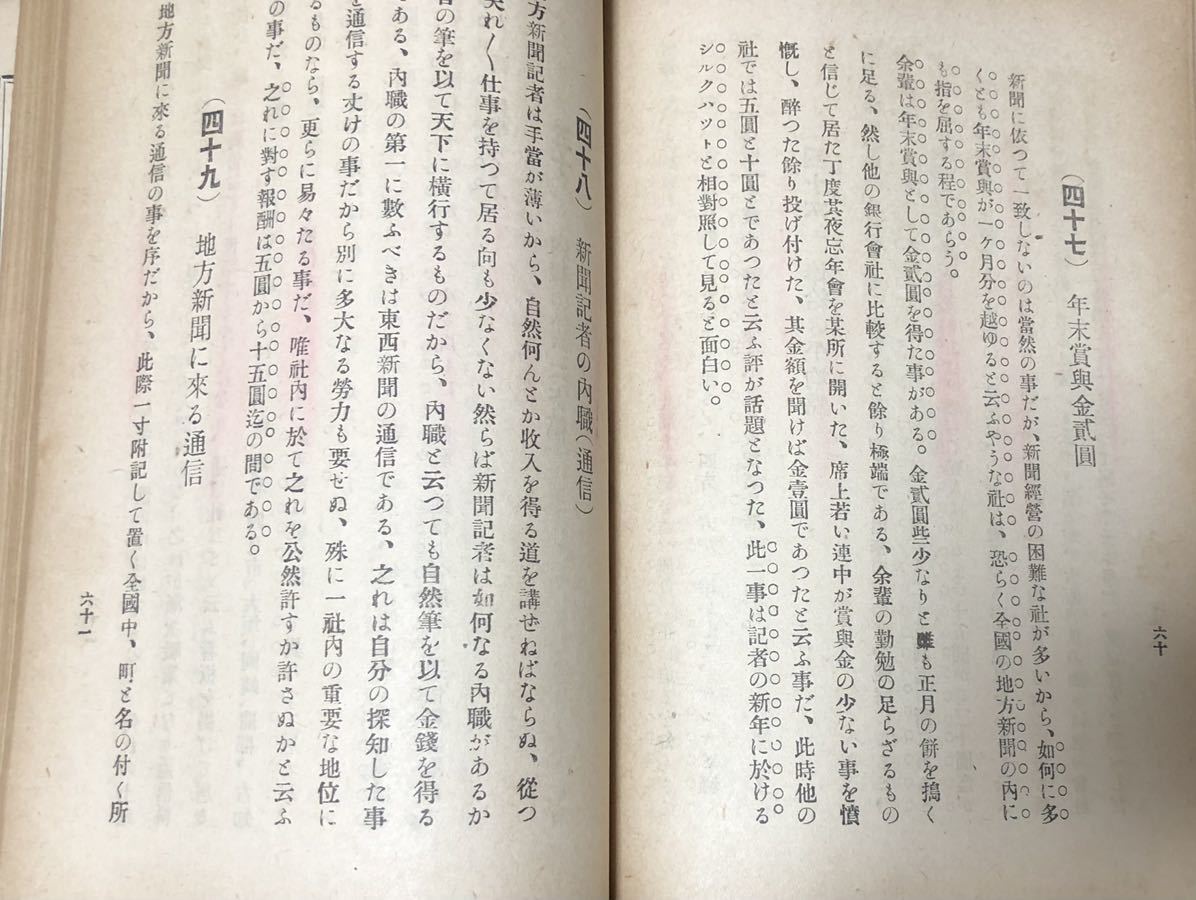 (四十七) 年末賞與金貳圓
新聞に依つて一致しないのは當然の事だが、新聞經營の困難な社が多いから、如何に多
くとも年末賞與が一ヶ月分を越ゆると云ふやうな社は、恐らく全國の地方新聞の內に
も指を屈する程であらう。
余輩は年末賞與として金貳圓を得た事がある。金貳圓些少なりと雖も正月の餅を搗く
に足る、然し他の銀行會社に比較すると餘り極端である、余輩の勤勉の足らざるもの
と信じて居た丁度其夜忘年會を某所に開いた、席上若い連中が賞與金の少ない事を憤
慨し、醉つた餘り投げ付けた、其金額を聞けば金壹圓であつたと云ふ事だ、此時他の
社では五圓と十圓とであつたと云ふ評が話題となつた、此一事は記者の新年に於ける
シルクハツトと相對照して見ると面白い。
六十
(四十八) 新聞記者の內職(通信)
方新聞記者は手當が薄いから、自然何んとか收入を得る道を講せねばならぬ、從つ
夫れ〱仕事を持つて居る向も少なくない然らば新聞記者は如何なる內職があるか
者の筆を以て天下に橫行するものだから、內職と云つても自然筆を以て金錢を得る
ある、內職の第一に數ふべきは東西新聞の通信である、之れは自分の探知した事
を通信する丈けの事だから別に多大なる勞力も要せぬ、殊に一社內の重要な地位に
るものなら、更らに易々たる事だ、唯社內に於て之れを公然許すか許さぬかと云ふ
の事だ、之れに對す報酬は五圓から十五圓迄の間である。
(四十九) 地方新聞に來る通信
地方新聞に來る通信の事を序だから、此際一寸附記して置く全國中、町と名の付く所
六十一